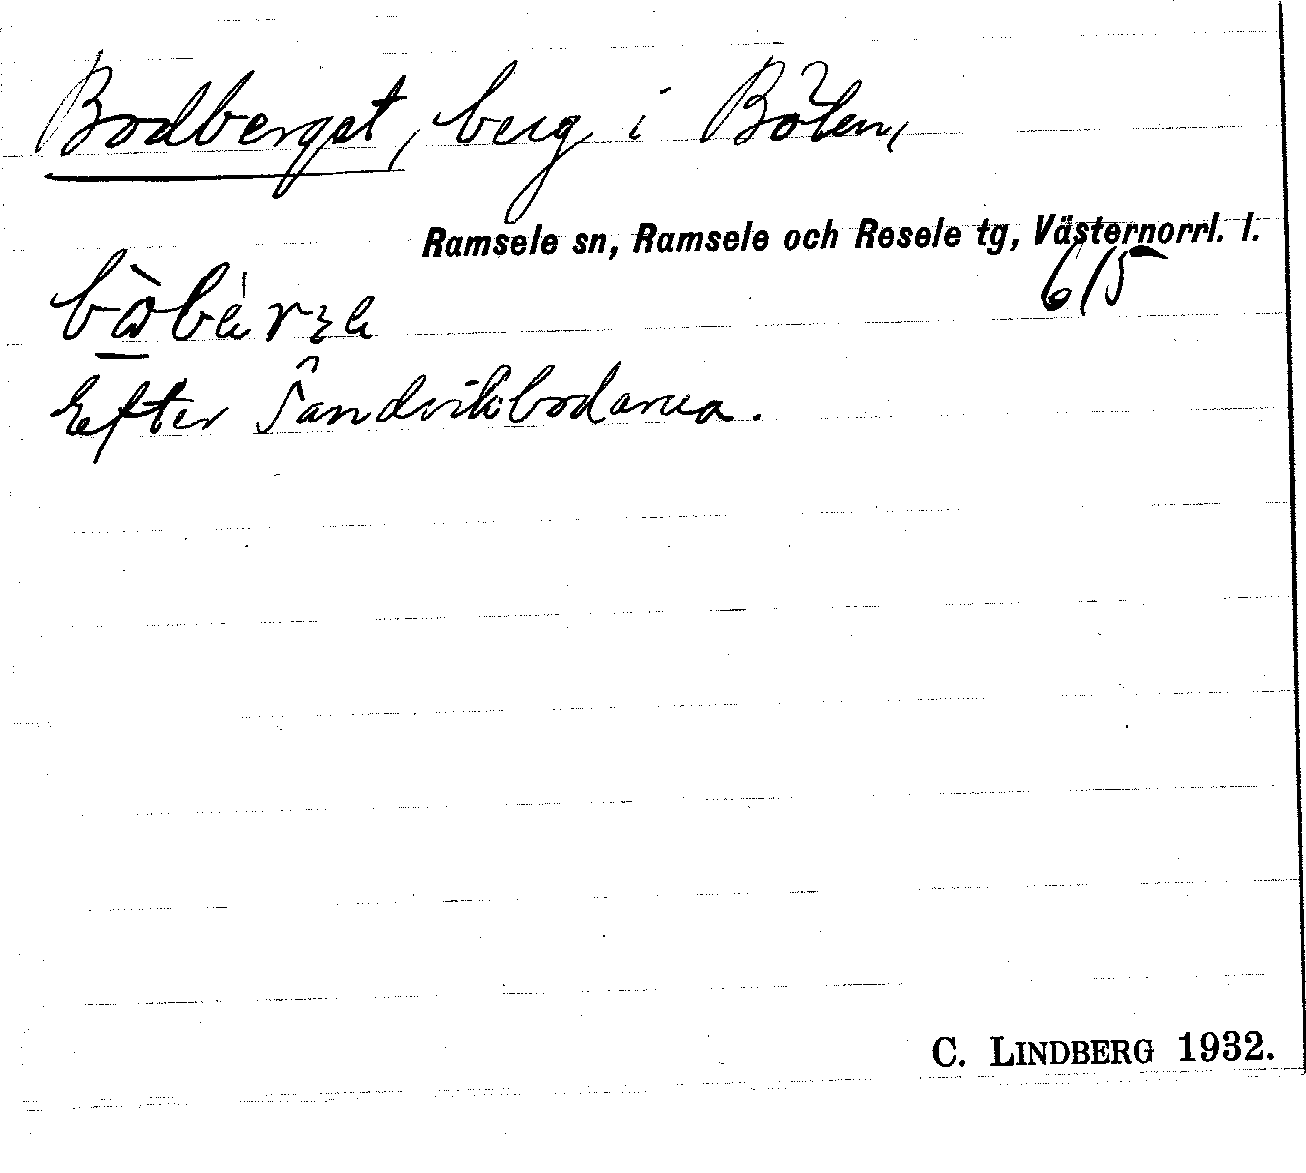 Bodberget, berg i Bölen,
Ramsele sn, Ramsele och Resele tg, Västernorrl. l.
6/5
Efter Sandvikbodarna.
C. LINDBERG 1932.